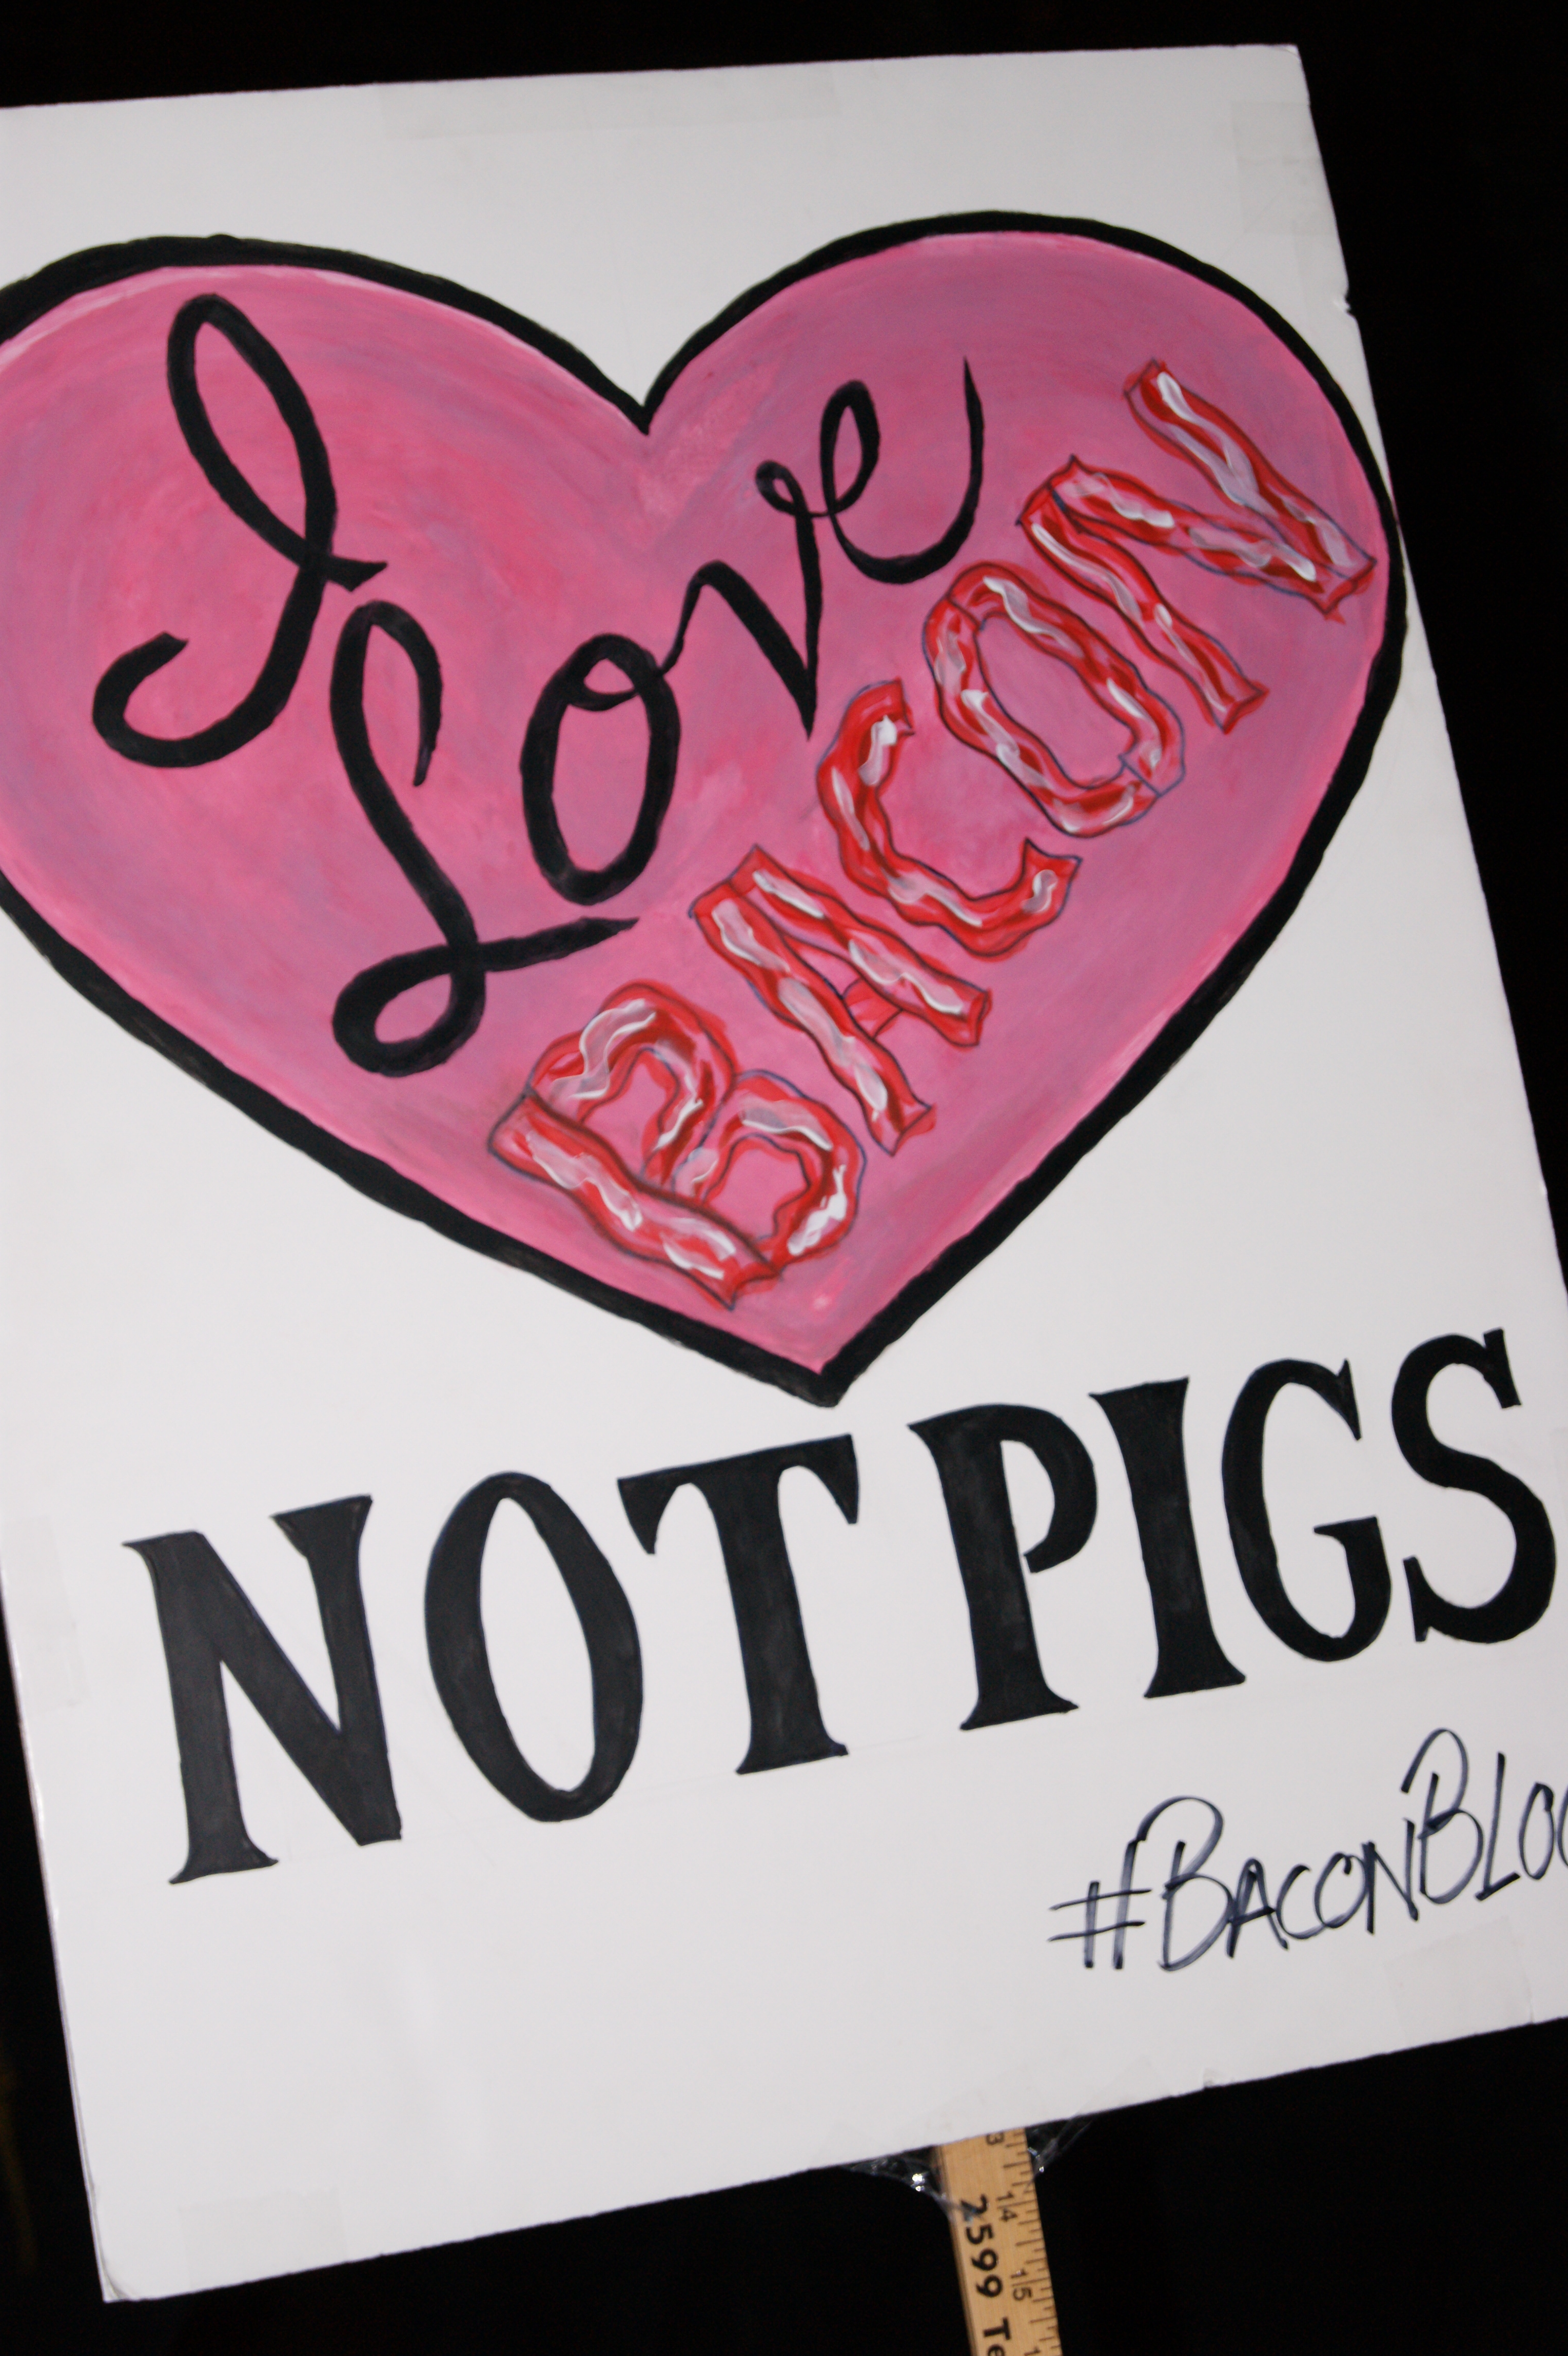 I
Love
BACON
NOT PIGS
#BACONBLOC
3
14
15
2599 Te